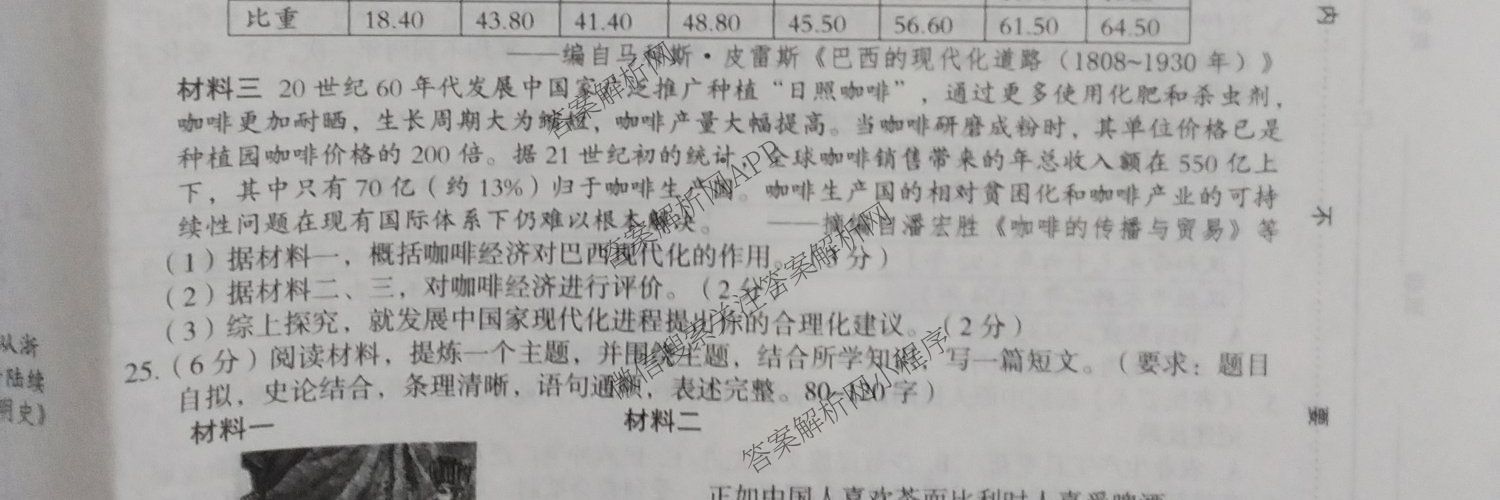 比重 18.40 43.80 41.40 48.80 45.50 56.60 61.50 64.50
——编自马 斯·皮雷斯《巴西的现代化道路（1808~1930年）》
材料三 20世纪60年代发展中国家 泛推广种植“日照咖啡”，通过更多使用化肥和杀虫剂，
咖啡更加耐晒，生长周期大为缩短，咖啡产量大幅提高。当咖啡研磨成粉时，其单位价格已是
种植园咖啡价格的200倍。据21世纪初的统计，全球咖啡销售带来的年总收入额在550亿上
下，其中只有70亿（约13%）归于咖啡生产国。咖啡生产国的相对贫困化和咖啡产业的可持
续性问题在现有国际体系下仍难以根本解决。 ——摘编自潘宏胜《咖啡的传播与贸易》等
（1）据材料一，概括咖啡经济对巴西现代化的作用。 分）
（2）据材料二、三，对咖啡经济进行评价。（2分
（3）综上探究，就发展中国家现代化进程提出你的合理化建议。（2分）
25.（6分）阅读材料，提炼一个主题，并围绕主题，结合所学知识，写一篇短文。（要求：题目
自拟，史论结合，条理清晰，语句通顺，表述完整。80~120字）
材料一 材料二
正如中国人喜欢茶而比利时人喜爱啤酒
从浙
陆续
明史》
内
不
要
答案解析网
答案解析网APP
微信搜索关注答案解析网
答案解析网小程序